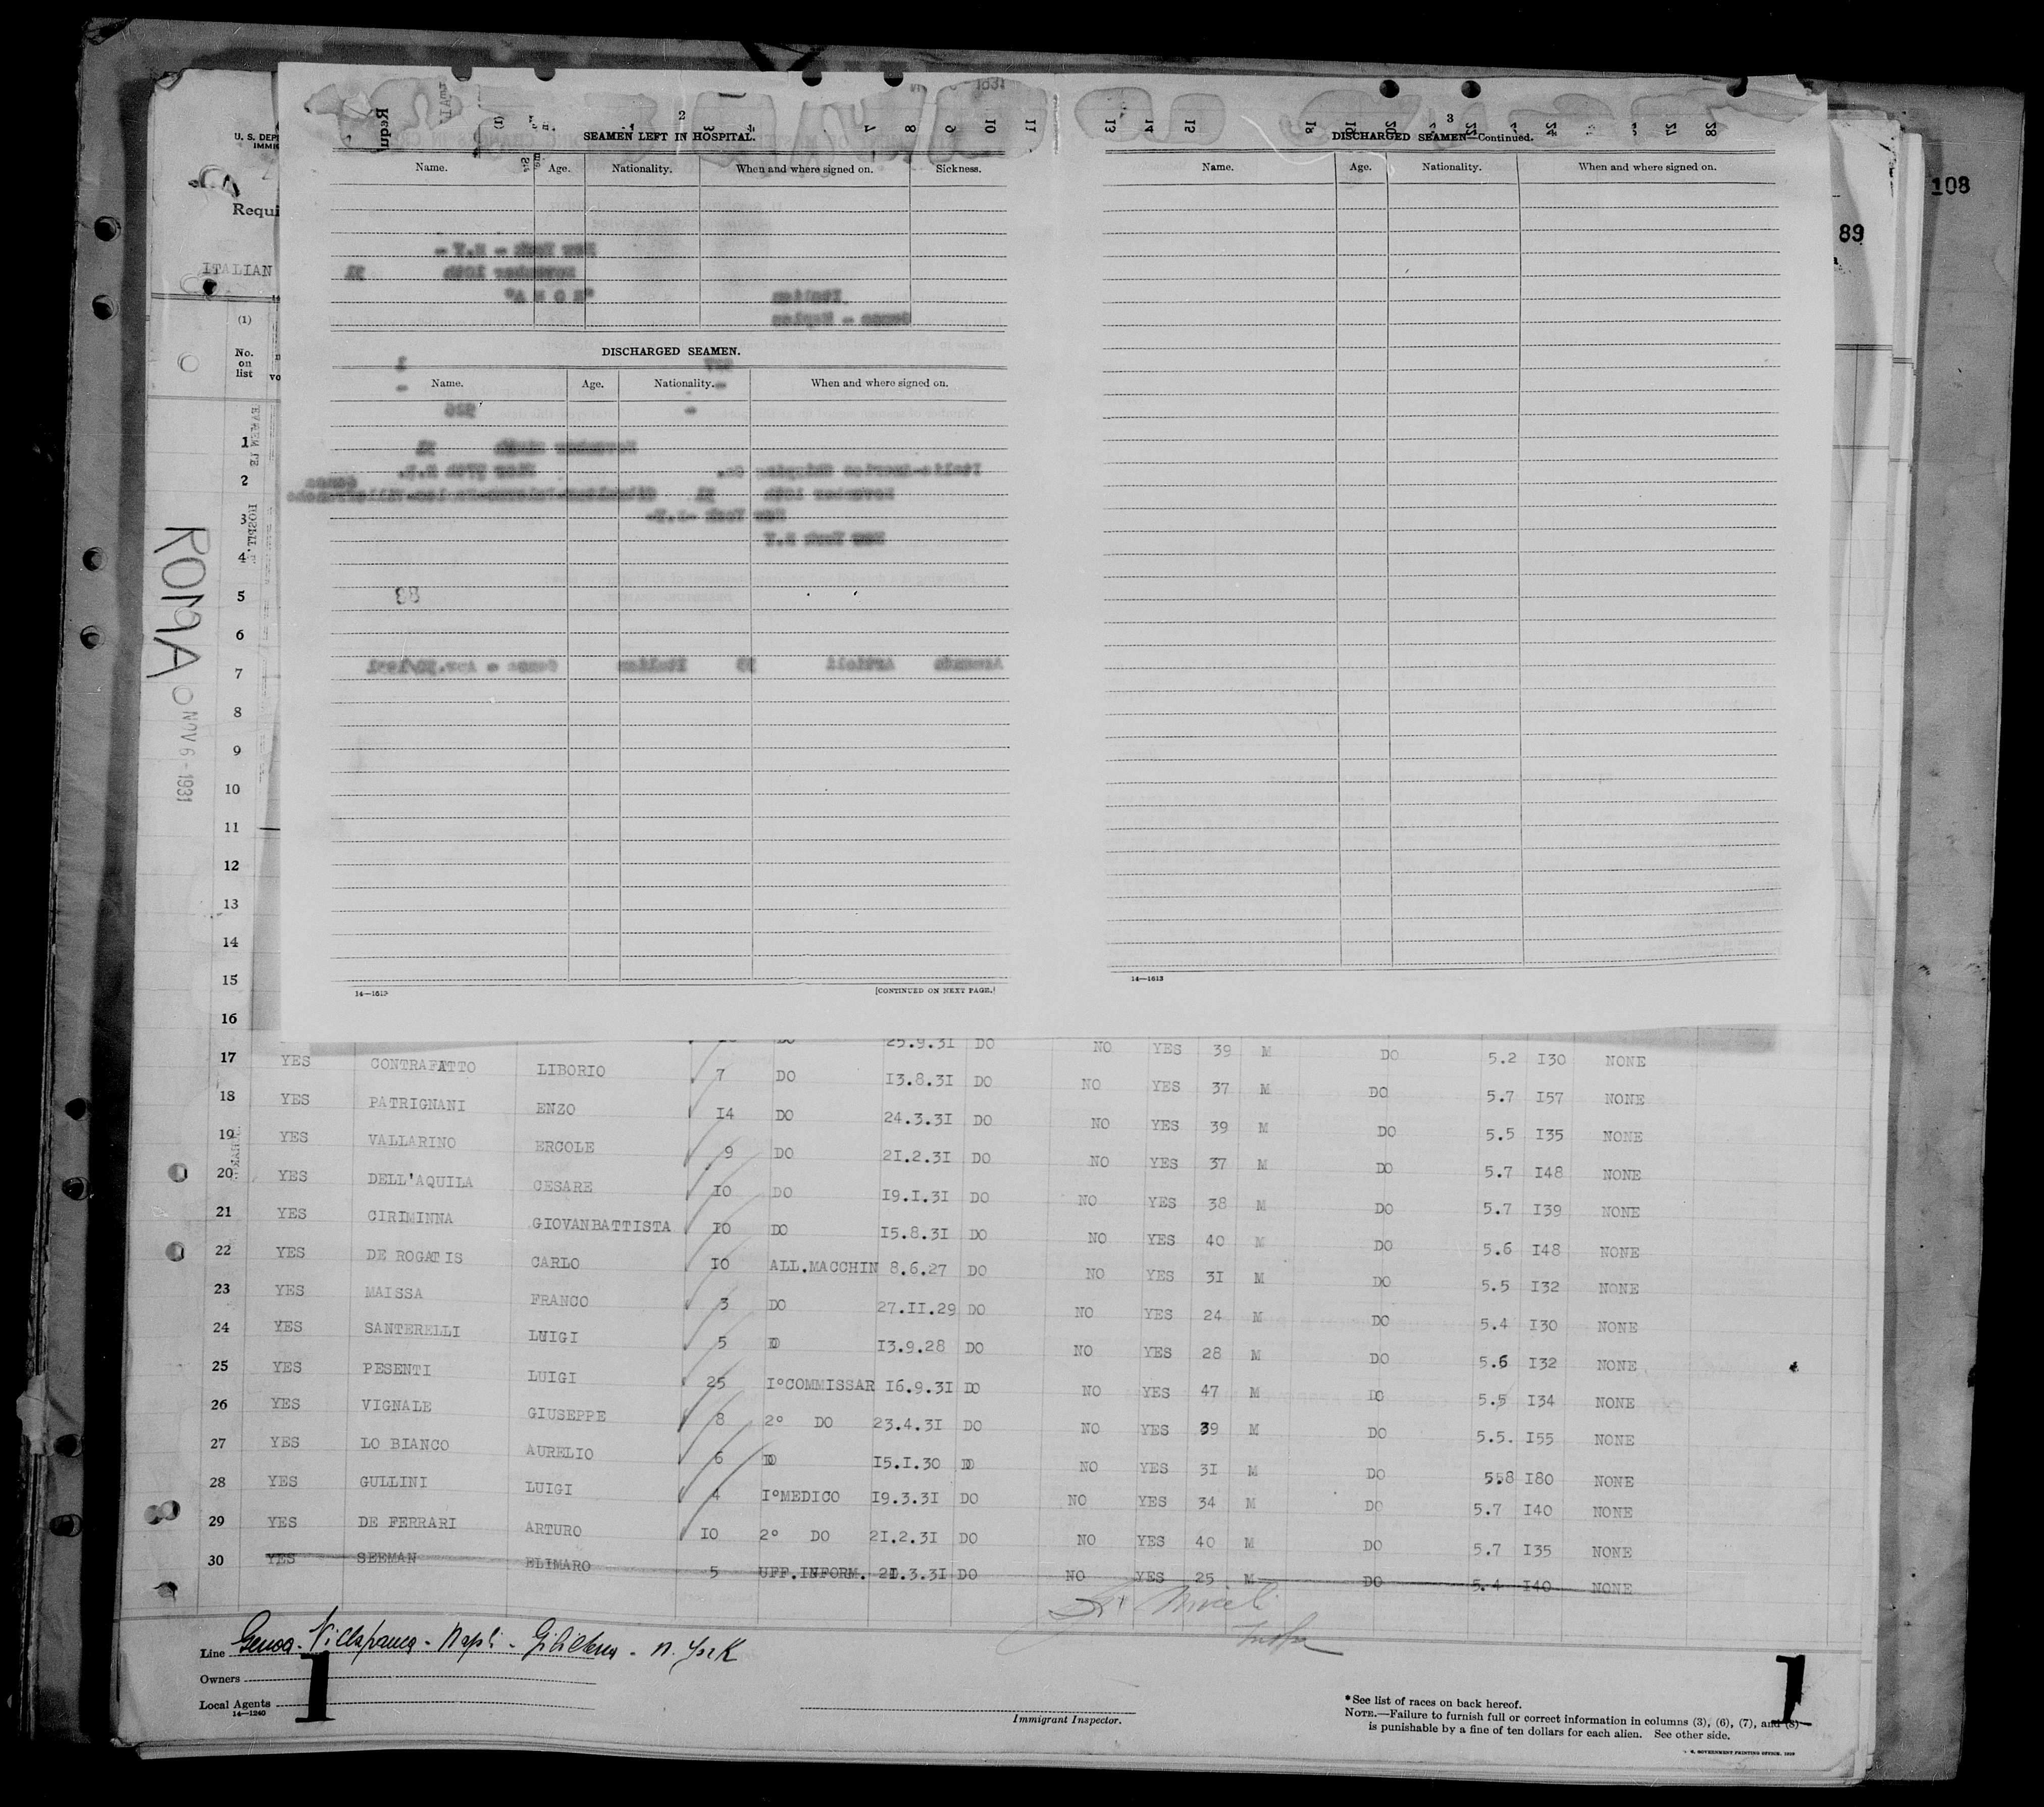 108
89
U. S. DEP
IMMIG
Requi
ITALIAN
(1)
No.
on
list
ROMA
NOV 6 - 1931
2
SEAMEN LEFT IN HOSPITAL.
Name. Age. Nationality. When and where signed on. Sickness.
DISCHARGED SEAMEN.
Name. Age. Nationality. When and where signed on.
14—1613
[CONTINUED ON NEXT PAGE.]
3
DISCHARGED SEAMEN—Continued.
Name. Age. Nationality. When and where signed on.
14—1613
1
2
3
4
5
6
7
8
9
10
11
12
13
14
15
16
25.9.31 DO NO YES 39 M DO 5.2 I30 NONE
17 YES CONTRAFATTO LIBORIO 7 DO I3.8.3I DO NO YES 37 M DO 5.7 I57 NONE
18 YES PATRIGNANI ENZO I4 DO 24.3.3I DO NO YES 39 M DO 5.5 I35 NONE
19 YES VALLARINO ERCOLE 9 DO 2I.2.3I DO NO YES 37 M DO 5.7 I48 NONE
20 YES DELL'AQUILA CESARE IO DO I9.I.3I DO NO YES 38 M DO 5.7 I39 NONE
21 YES CIRIMINNA GIOVANBATTISTA IO DO I5.8.3I DO NO YES 40 M DO 5.6 I48 NONE
22 YES DE ROGATIS CARLO IO ALL.MACCHIN 8.6.27 DO NO YES 3I M DO 5.5 I32 NONE
23 YES MAISSA FRANCO 3 DO 27.II.29 DO NO YES 24 M DO 5.4 I30 NONE
24 YES SANTERELLI LUIGI 5 DO I3.9.28 DO NO YES 28 M DO 5.6 I32 NONE
25 YES PESENTI LUIGI 25 I°COMMISSAR I6.9.3I DO NO YES 47 M DO 5.5 I34 NONE
26 YES VIGNALE GIUSEPPE 8 2° DO 23.4.3I DO NO YES 39 M DO 5.5. I55 NONE
27 YES LO BIANCO AURELIO 6 DO I5.I.30 DO NO YES 3I M DO 5.8 I80 NONE
28 YES GULLINI LUIGI 4 I°MEDICO I9.3.3I DO NO YES 34 M DO 5.7 I40 NONE
29 YES DE FERRARI ARTURO IO 2° DO 2I.2.3I DO NO YES 40 M DO 5.7 I35 NONE
30 YES SEEMAN ELIMARO 5 UFF.INFORM. 20.3.3I DO NO YES 25 M DO 5.4 I40 NONE
Line Genoa - Villafranca - Napoli - Gibilterra - N. York
Owners
Local Agents
14—1240
1
Immigrant Inspector.
*See list of races on back hereof.
NOTE.—Failure to furnish full or correct information in columns (3), (6), (7), and (8)
is punishable by a fine of ten dollars for each alien. See other side.
U. S. GOVERNMENT PRINTING OFFICE. 1929
1